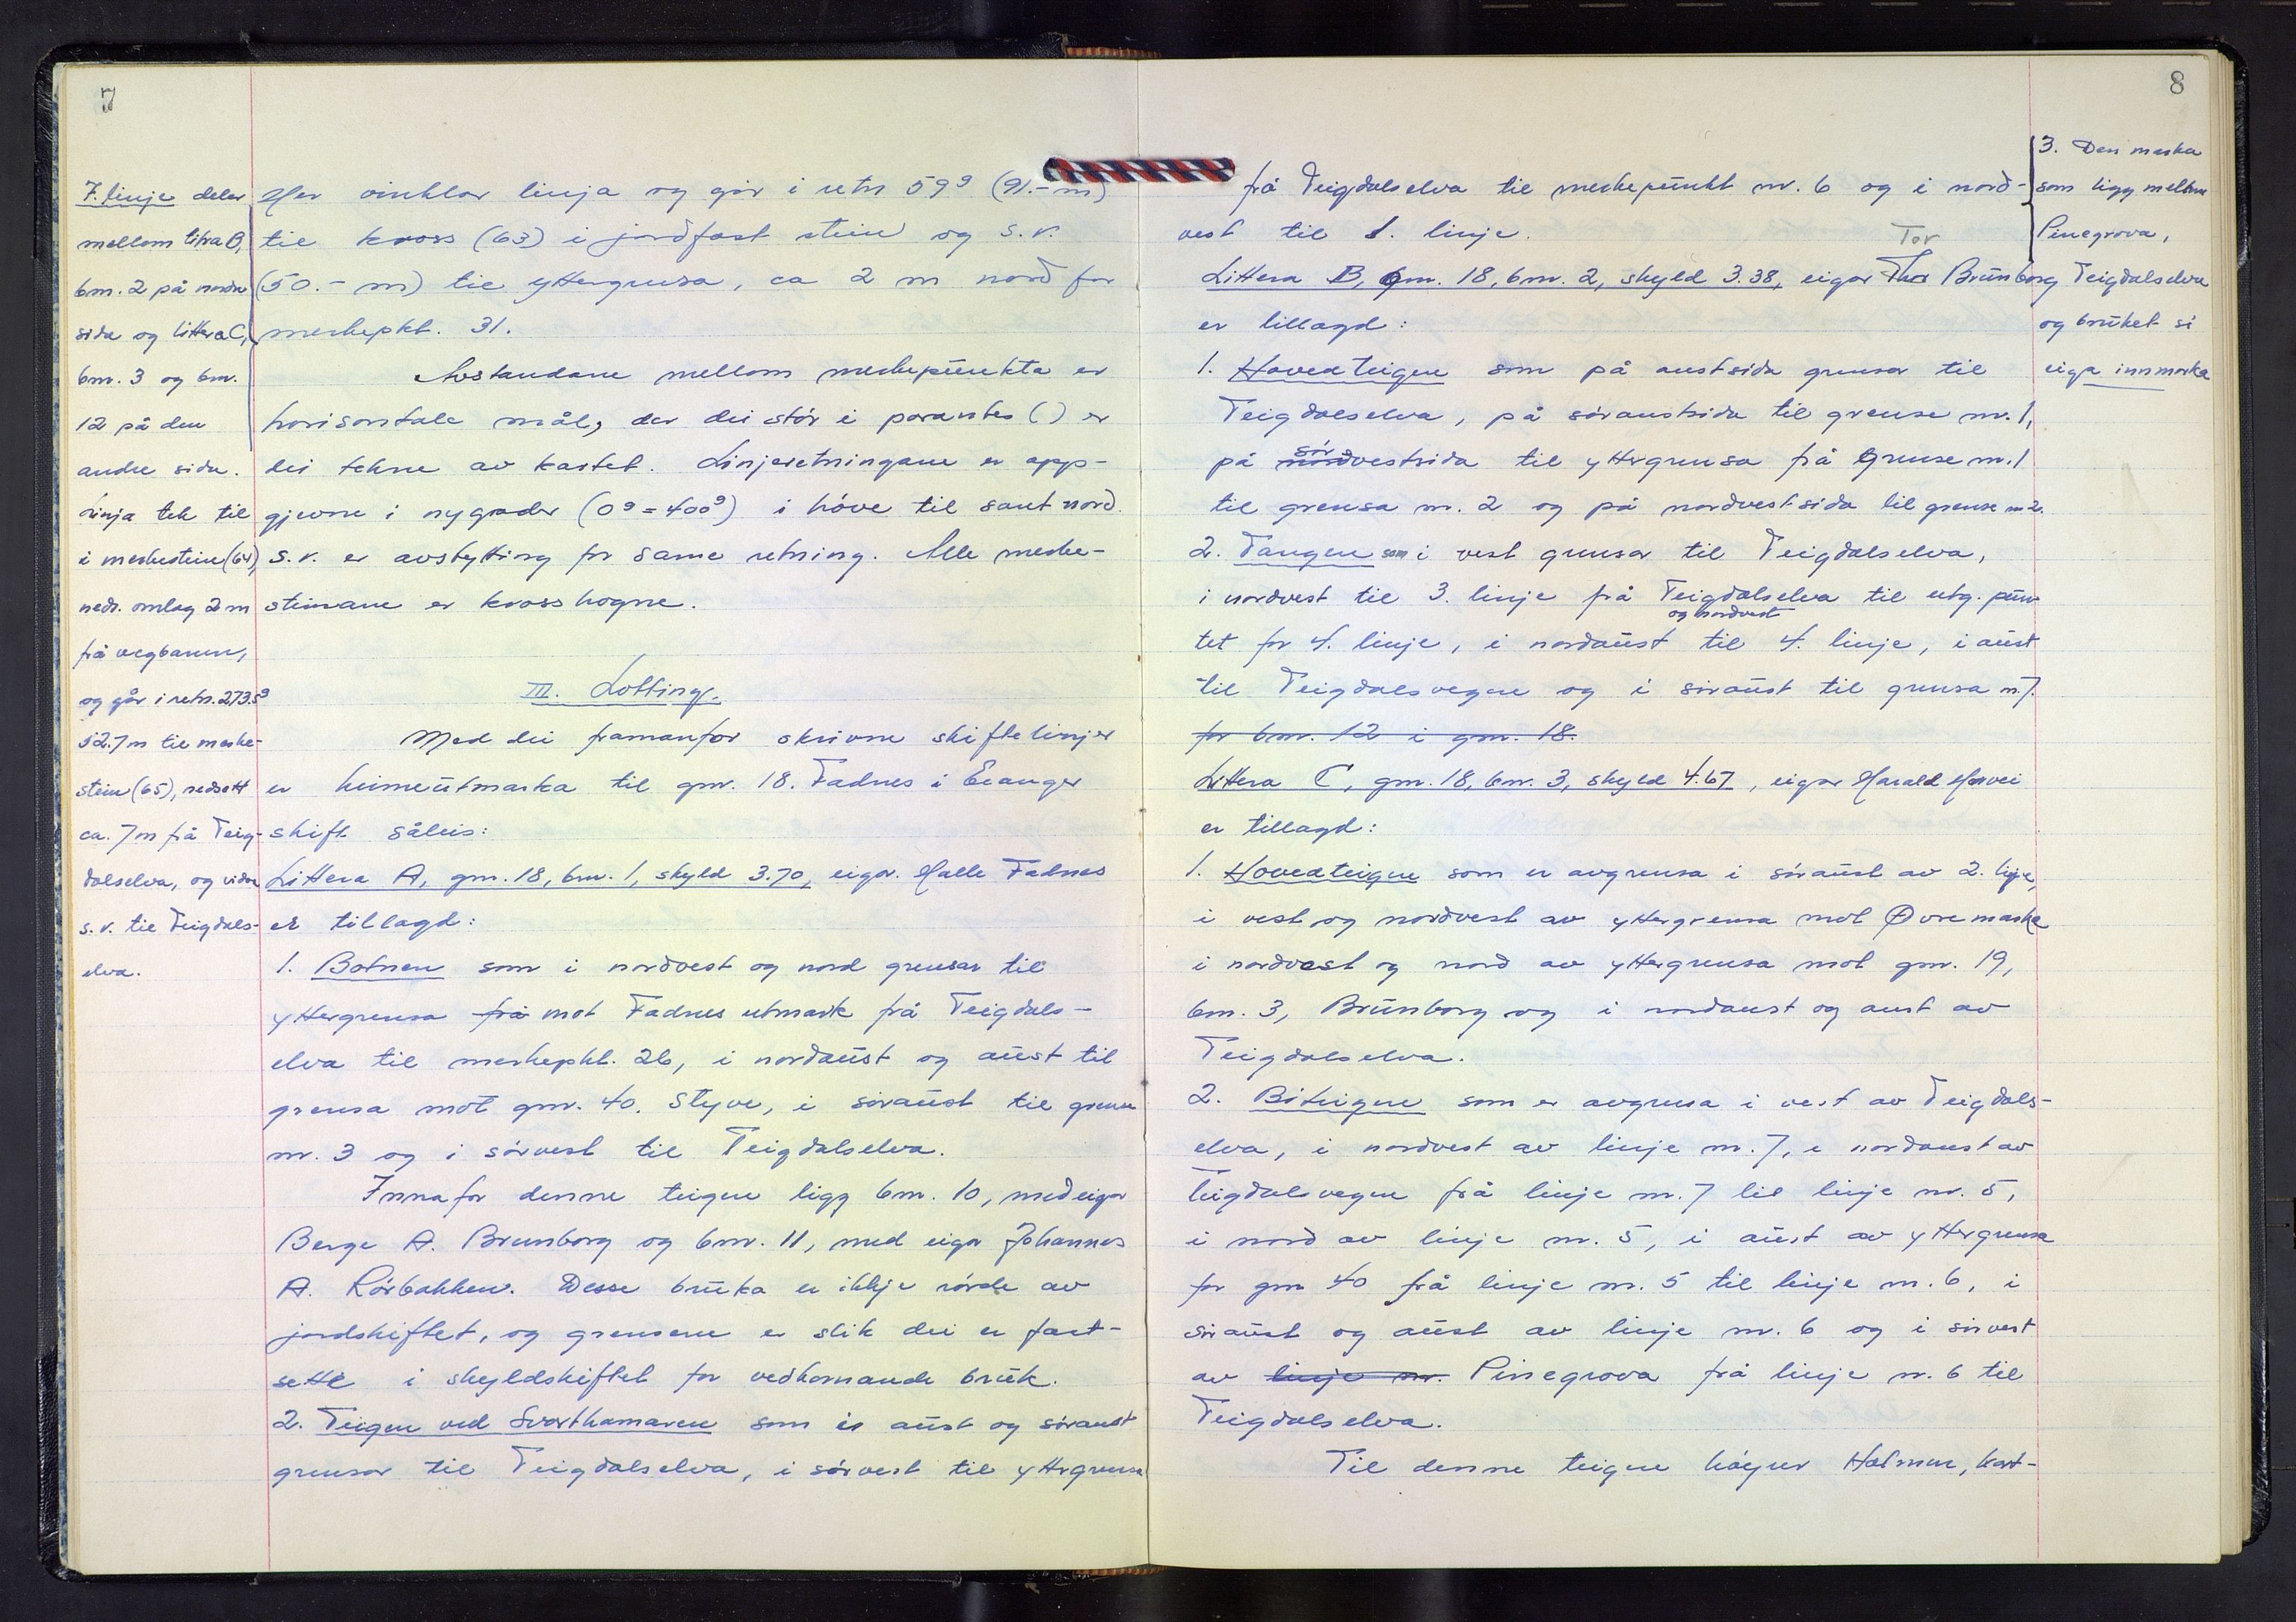 7
7. linje deler
mellom litra B,
bnr. 2 på nordre
side og littera C,
bnr. 3 og bnr.
12 på den
andre sida.
Linja tek til
i merkestein (64),
neds. omlag 2 m
frå vegbanen,
og går i retn. 273.5g
52.7 m til merke-
stein (65), nedsett
ca. 7 m frå Teig-
dalselva, og vidare
s.r. til Teigdals-
elva.
Her vinklar linja og går i retn 59g (91.- m)
til kross (63) i jordfast stein og s.r.
(50.- m) til yttergrensa, ca 2 m nord for
merkepkt. 31.
Avstandane mellom merkepunkta er
horisontale mål, der dei står i parantes ( ) er
dei tekne av kartet. Linjeretningane er opp-
gjevne i nygrader (0g = 400g) i høve til sant nord.
s.r. er avstytting for same retning. Alle merke-
steinane er krosshogne.
III. Lotting.
Med dei framanfor skrivne skiftelinjer
er heimeutmarka til gnr. 18. Fadnes i Evanger
skift såleis:
Littera A, gnr. 18, bnr. 1, skyld 3.70, eigar. Halle Fadnes
er tillagd:
1. Botnen som i nordvest og nord grensar til
yttergrensa frå mot Fadnes utmark frå Teigdals-
elva til merkepkt. 26, i nordaust og aust til
grensa mot gnr. 40. Styve, i søraust til grense
nr. 3 og i sørvest til Teigdalselva.
Innafor denne teigen ligg bnr. 10, med eigar
Berge A. Brunborg og bnr. 11, med eigar Johannes
A. Rørbakken. Desse bruka er ikkje rørde av
jordskiftet, og grensene er slik dei er fast-
sette i skyldskiftet for vedkomande bruk.
2. Teigen ved Svarthamaren som i aust og søraust
grensar til Teigdalselva, i sørvest til yttergrensa
8
frå Teigdalselva til merkepunkt nr. 6 og i nord-
vest til 1. linje.
Tor
Littera B, gnr. 18, bnr. 2, skyld 3.38, eigar Thor Brunborg
er tillagd:
1. Hovedteigen som på austsida grensar til
Teigdalselva, på søraustsida til grense nr. 1,
sør
på nordvestsida til yttergrensa frå grense nr. 1
til grensa nr. 2 og på nordvestsida til grense nr 2.
2. Tangen som i vest grensar til Teigdalselva,
i nordvest til 3. linje frå Teigdalselva til utg. punk
og nordvest
tet for 4. linje, i nordaust til 4. linje, i aust
til Teigdalsvegen og i søraust til grensa nr. 7.
for bnr. 12 i gnr. 18.
Littera C, gnr. 18, bnr. 3, skyld 4.67, eigar Harald Horvei
er tillagd:
1. Hovedteigen som er avgrensa i søraust av 2. linje,
i vest og nordvest av yttergrensa mot Øvre marka
i nordvest og nord av yttergrensa mot gnr. 19,
bnr. 3, Brunborg og i nordaust og aust av
Teigdalselva.
2. Biteigen som er avgrensa i vest av Teigdals-
elva, i nordvest av linje nr. 7, i nordaust av
Teigdalsvegen frå linje nr. 7 til linje nr. 5,
i nord av linje nr. 5, i aust av yttergrensa
for gnr 40 frå linje nr. 5 til linje nr. 6, i
søraust og aust av linje nr. 6 og i sørvest
av linje nr. Pinegrova frå linje nr. 6 til
Teigdalselva.
Til denne teigen høyrer Holmen, kart-
3. Den marka
som ligg mellom
Pinegrova,
Teigdalselva
og bruket si
eiga innmarka